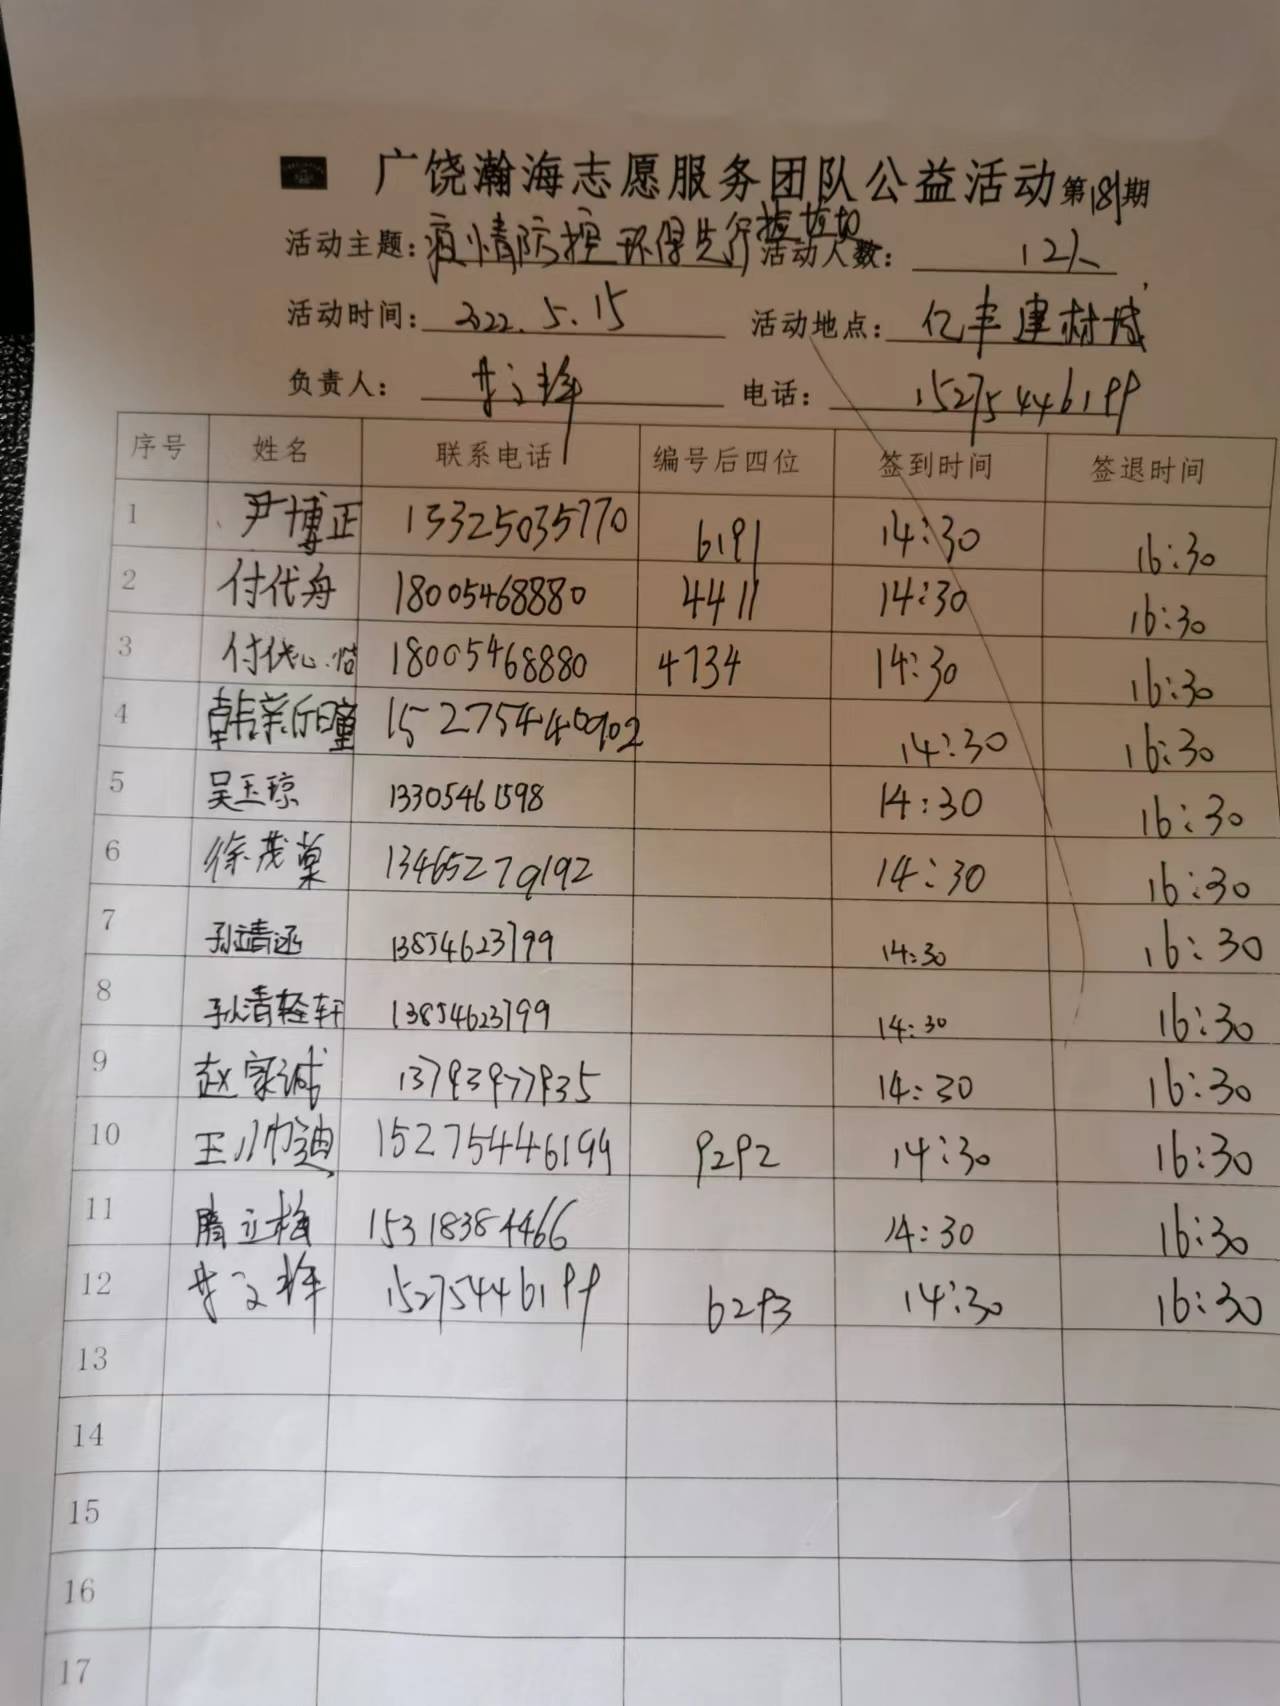 广饶瀚海志愿服务团队公益活动第181期
活动主题：疫情防控 环保先行捡垃圾 活动人数：12人
活动时间：2022.5.15 活动地点：亿丰建材城
负责人： 电话：15275446199
序号 姓名 联系电话 编号后四位 签到时间 签退时间
1 尹博正 15325035770 6191 14:30 16:30
2 付代舟 18005468880 4411 14:30 16:30
3 18005468880 4734 14:30 16:30
4 14:30 16:30
5 吴玉琼 13305461598 14:30 16:30
6 徐茂菓 13465279192 14:30 16:30
7 孙靖涵 13854623799 14:30 16:30
8 13854623799 14:30 16:30
9 赵家诚 13793977935 14:30 16:30
10 15275446199 9292 14:30 16:30
11 15318384466 14:30 16:30
12 15275446199 6293 14:30 16:30
13
14
15
16
17